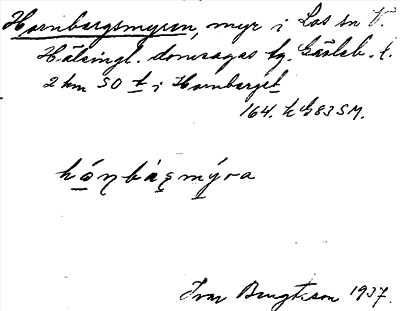 Hornbergsmyren, myr i Los sn V.
Hälsingl. domsagas tg. Gävleb. l.
2 km SO t i Hornberget
164. h G83SM.
hó̱ṇbä̱ṣmýra
Ivar Bengtsson 1937.